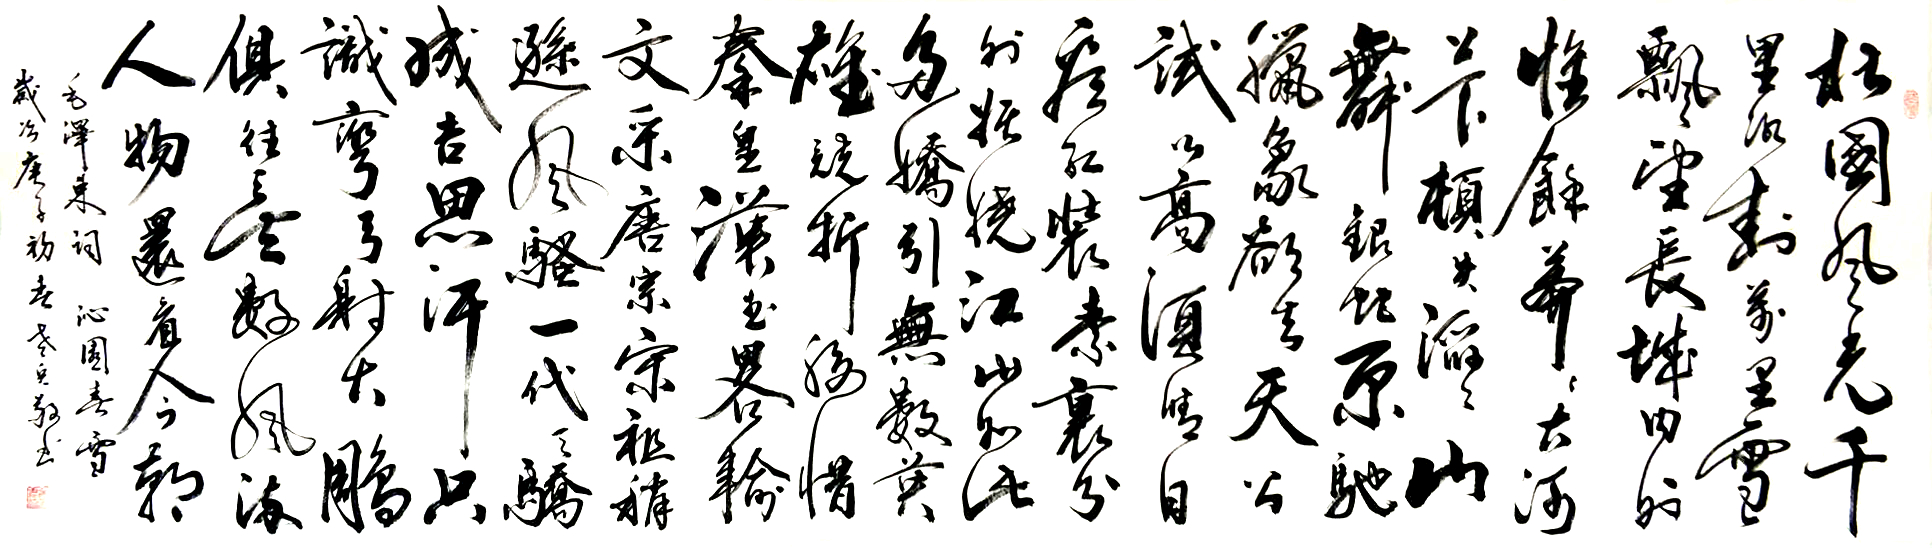 北國風光千
里冰封萬里雪
飄望長城內外
惟餘莽々大河
上下頓失滔々山
舞銀蛇原馳
臘象欲與天公
試比高須晴日
看紅裝素裹分
外妖嬈江山如此
多嬌引無數英
雄競折腰惜
秦皇漢武略輸
文采唐宗宋祖稍
遜風騷一代天驕
成吉思汗只
識彎弓射大鵰
俱往矣數風流
人物還看今朝
毛澤東詞 沁園春雪
歲次庚子初春老兵敬书